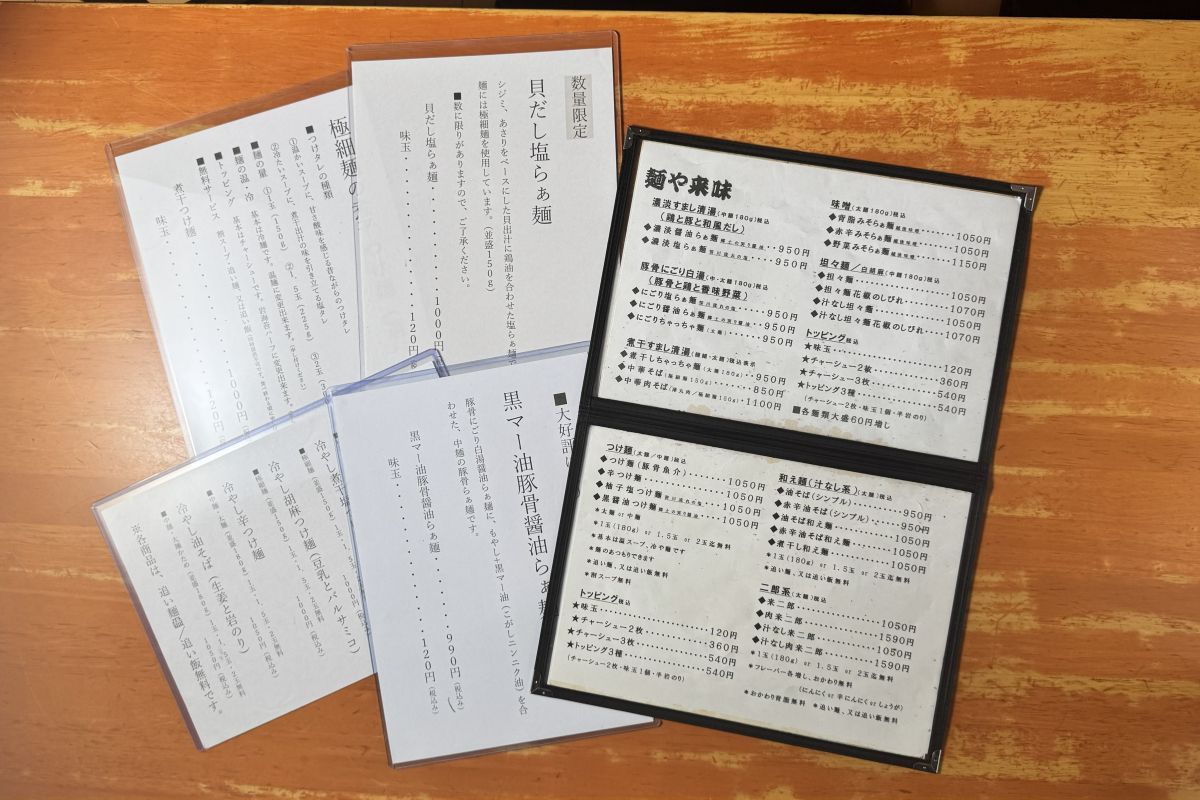 数量限定
貝だし塩らぁ麺
シジミ、あさりをベースにした貝出汁に鶏油を合わせた塩らぁ麺
麺には極細麺を使用しています。(並盛150g)
■数に限りがありますので、ご了承ください。
貝だし塩らぁ麺・・・・・・・1000円
味玉・・・・・・・・・・・120円
極細麺の
■つけタレの種類
①温かいスープに、甘さ酸味を感じる昔ながらのつけタレ
②冷たいスープに、煮干出汁の味を引き立てる塩タレ
■麺の量 ①1玉(150g) ②1.5玉(225g) ③2玉
■麺の温・冷 基本は冷麺です。温麺に変更出来ます。
■トッピング 基本はチャーシューです。岩海苔ハーフに変更出来ます。
■無料サービス 割スープ、追い麺、又は追い飯
煮干つけ麺・・・・・・・1000円
味玉・・・・・・・・・・120円
■大好評
黒マー油豚骨醤油らぁ麺
豚骨にごり白湯醤油らぁ麺に、もやし・黒マー油(こがしニンニク油)を合
わせた、中麺の豚骨らぁ麺です。
黒マー油豚骨醤油らぁ麺・・・・990円(税込み)
味玉・・・・・・・・・・120円(税込み)
冷やし煮干
冷やし胡麻つけ麺(豆乳とバルサミコ)
冷やし辛つけ麺
冷やし油そば(生姜と岩のり)
1050円(税込み)
※各商品は、追い麺・追い飯無料です。
麺や来味
濃淡すまし清湯(中麺180g)税込
(鶏と豚と和風だし)
◆濃淡醤油らぁ麺・・950円
◆濃淡塩らぁ麺・・950円
豚骨にごり白湯(中・太麺180g)税込
(豚骨と鶏と香味野菜)
◆にごり塩らぁ麺・・950円
◆にごり醤油らぁ麺・・950円
◆にごりちゃっちゃ麺(太麺)・・・950円
煮干すまし清湯(極細・太麺)税込表示
◆煮干しちゃっちゃ麺(太麺180g)・・950円
◆中華そば(極細麺150g)・・・・850円
◆中華肉そば(薄丸肉/極細麺150g)・1100円
味噌(太麺180g)税込
◆背脂みそらぁ麺・・・・・1050円
◆赤辛みそらぁ麺・・・・・1050円
◆野菜みそらぁ麺・・・・・1150円
坦々麺/白胡麻(中麺180g)税込
◆担々麺・・・・・・・・・1050円
◆担々麺花椒のしびれ・・・1070円
◆汁なし坦々麺・・・・・・1050円
◆汁なし坦々麺花椒のしびれ・1070円
トッピング税込
★味玉・・・・・・・・・・・120円
★チャーシュー2枚・・・・・360円
★チャーシュー3枚・・・・・540円
★トッピング3種・・・・・・540円
(チャーシュー2枚・味玉1個・半岩のり)
■各麺類大盛60円増し
つけ麺(太麺/中麺)税込
◆つけ麺(豚骨魚介)・・・・1050円
◆辛つけ麺・・・・・・・・1050円
◆柚子塩つけ麺・・・1050円
◆黒醤油つけ麺・・・1050円
*太麺or中麺
*1玉(180g) or 1.5玉 or 2玉迄無料
*基本は温スープ、冷や麺です
*麺のあつもりできます
*追い麺、又は追い飯無料
*割スープ無料
トッピング税込
★味玉・・・・・・・・・・・120円
★チャーシュー2枚・・・・・360円
★チャーシュー3枚・・・・・540円
★トッピング3種・・・・・・540円
(チャーシュー2枚・味玉1個・半岩のり)
和え麺(汁なし系)(太麺)税込
◆油そば(シンプル)・・・・・950円
◆赤辛油そば(シンプル)・・・950円
◆油そば和え麺・・・・・・1050円
◆赤辛油そば和え麺・・・・1050円
◆煮干し和え麺・・・・・・1050円
*1玉(180g) or 1.5玉 or 2玉迄無料
*追い麺、又は追い飯無料
二郎系(太麺)税込
◆来二郎・・・・・・・・・1050円
◆肉来二郎・・・・・・・・1590円
◆汁なし来二郎・・・・・・1050円
◆汁なし肉来二郎・・・・・1590円
*1玉(180g) or 1.5玉 or 2玉迄無料
*フレーバー各増し、おかわり無料
(にんにくor辛にんにくorしょうが)
*おかわり背脂無料 *追い麺、又は追い飯無料